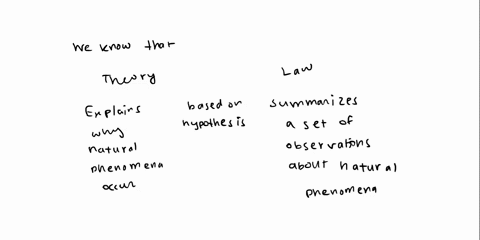 We know that
Theory
Law
Explains
why
natural
phenomena
occur
based on
hypothesis
summarizes
a set of
observations
about natural
phenomena